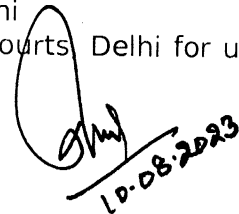 hi
ourts, Delhi for u
10.08.2023